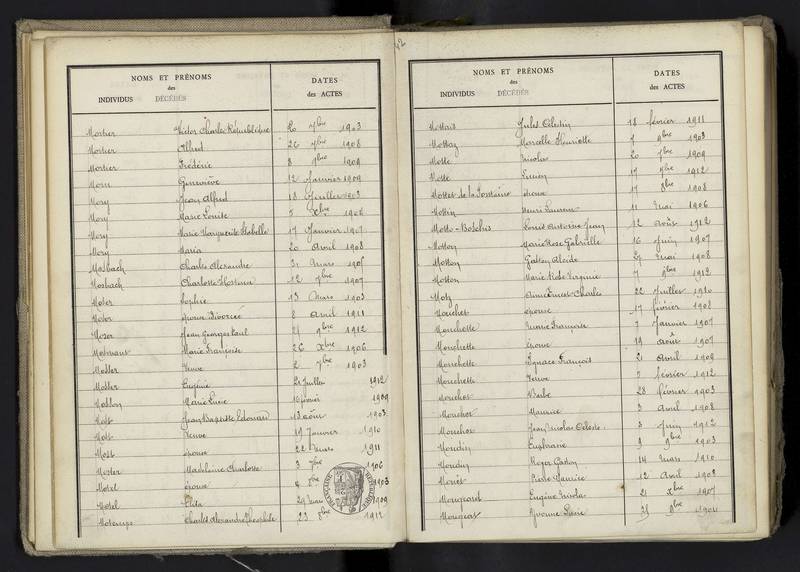 42
NOMS ET PRÉNOMS
des
INDIVIDUS DÉCÉDÉS
DATES
des ACTES
Mortier Victor Charles République 20 7bre 1903
Mortier Alfred 26 7bre 1908
Mortier Frédéric 8 9bre 1909
Geneviève 12 Janvier 1909
Mory Jean Alfred 18 Juillet 1903
Mory Marie Louise 5 Xbre 1906
Mory Marie Marguerite Isabelle 17 Janvier 1907
Mory Maria 20 Avril 1908
Mosbach Charles Alexandre 31 Mars 1905
Mosbach Charlotte Hortense 12 9bre 1907
Moser Sophie 13 Mars 1903
Moser divorcée 8 Avril 1911
Moser Jean Georges Paul 21 9bre 1912
Marie Françoise 26 Xbre 1906
Mosser Veuve 2 7bre 1903
Mosser Eugénie 21 Juillet 1912
Mosson Marie Lucie 16 février 1909
Most Jean Baptiste Edouard 13 août 1903
Most Veuve 19 Janvier 1910
Most épouse 22 Mars 1911
Madeleine Charlotte 3 7bre 1906
Motel épouse 4 8bre 1903
Motel 29 Mai 1909
Charles Alexandre Théophile 23 8bre 1912
NOMS ET PRÉNOMS
des
INDIVIDUS DÉCÉDÉS
DATES
des ACTES
Jules Célestin 18 février 1911
Marcelle Henriette 7 9bre 1903
Motte Nicolas 20 7bre 1909
Motte Lucien 17 9bre 1912
Mottet de la Fontaine épouse 17 8bre 1908
Mottin Henri Laurent 11 Mai 1906
Motto-Boschis Louis Antoine Jean 12 Août 1912
Motton Marie Rose Gabrielle 16 Juin 1907
Motton Gaston Alcide 27 Mai 1908
Motton Marie Rose Virginie 7 9bre 1912
Motz Ernest Charles 22 Juillet 1910
Mouchet épouse 17 février 1908
Mouchette Françoise 7 Janvier 1907
Mouchette épouse 19 Août 1907
Mouchette Ignace François 21 Avril 1909
Mouchette Veuve 5 février 1912
Mouchot Barbe 28 février 1903
Mouchot Maurice 3 Avril 1908
Mouchot Jean Nicolas Céleste 3 Juin 1912
Moudin Euphrasie 9 9bre 1903
Moudin Roger Gaston 14 Mars 1910
Pierre Maurice 12 Avril 1908
Mougeard Eugène Nicolas 21 Xbre 1907
Mougeot Yvonne 31 8bre 1904